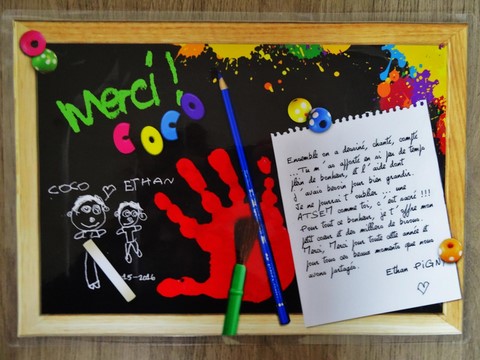 Merci !
COCO
COCO ♡ ETHAN
15-2016
Ensemble on a dessiné, chanté, compté
... Tu m'as apporté en si peu de temps
plein de bonheur, et l'aide dont
j'avais besoin pour bien grandir.
Je ne pourrai t'oublier ... une
ATSEM comme toi, c'est sacré !!!
Pour tout ce bonheur, je t'offre mon
petit coeur et des milliers de bisous.
Merci, Merci pour toute cette année et
pour tous ces beaux moments que nous
avons partagés.
Ethan PIGN